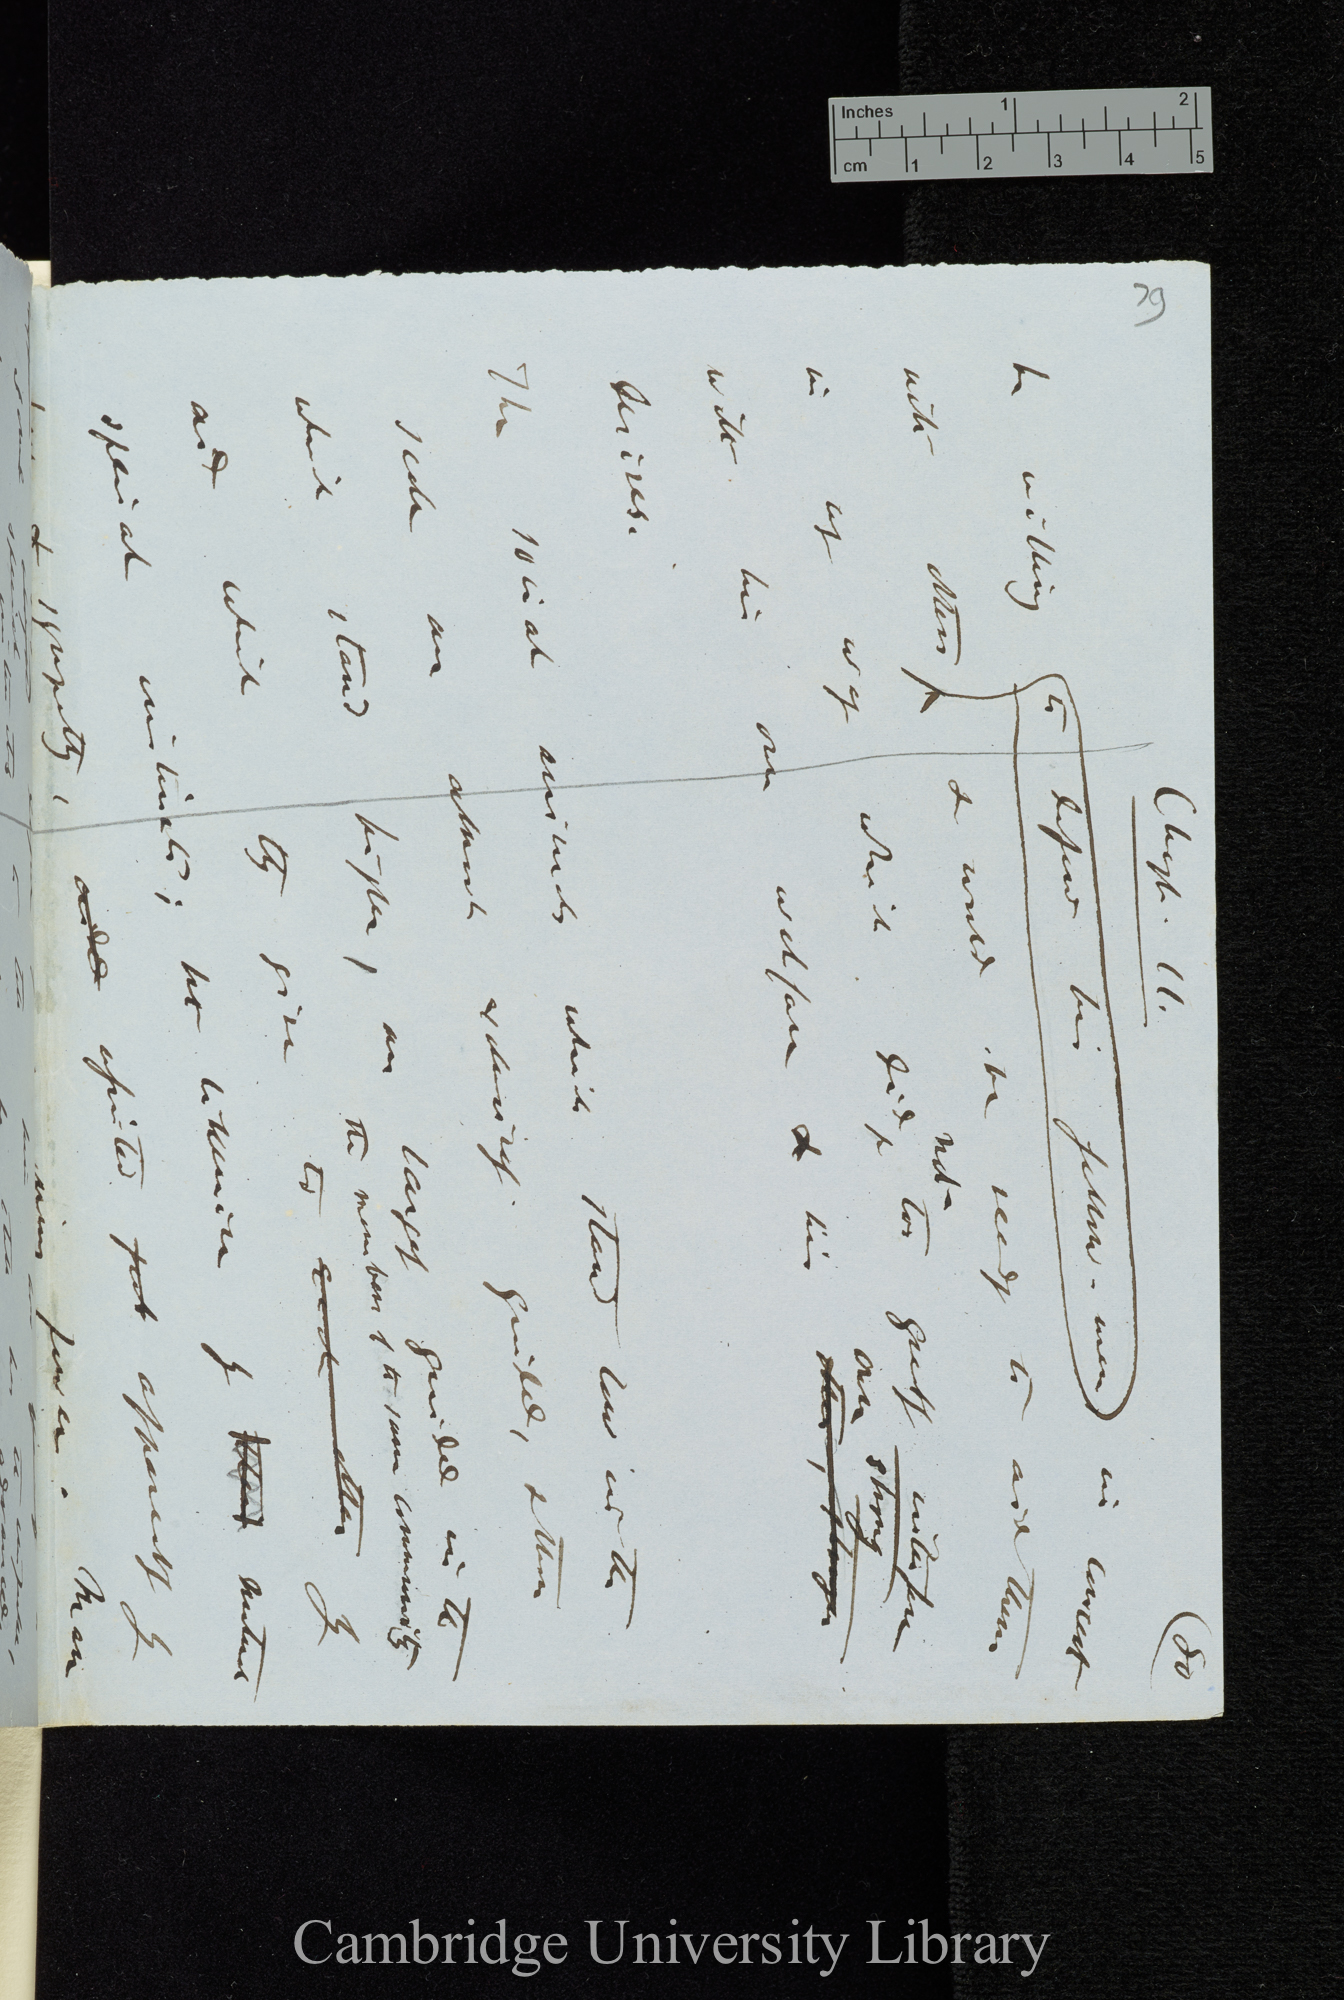 79
Chapt. III. (80
be willing to defend his fellow-men in concert
with others, & would be ready to aid them
in any way which did not too greatly interfere
with his own welfare & his own strong
desires.
The social animals which stand low in the
scale are almost exclusively guided, & those
which stand higher, are largely guided in the
the members of the same community
aid which they give to each other by
special instincts; but likewise by mutual
love & sympathy, aided apparently by
some power. Man
Inches 1 2
cm 1 2 3 4 5
Cambridge University Library